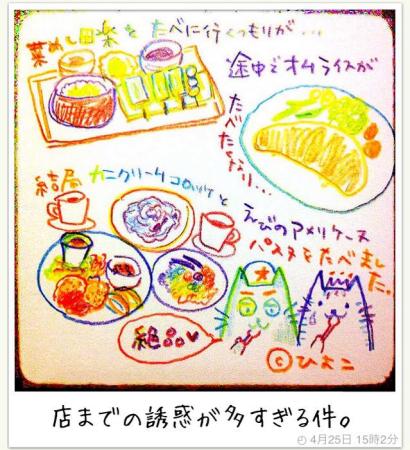 菜めし田楽を たべに行くつもりが…
途中でオムライスが
たべたくなり…
結局 カニクリームコロッケと
えびのアメリケーヌ
パスタをたべました。
絶品
©ひよこ
店までの誘惑が多すぎる件。
4月25日 15時2分